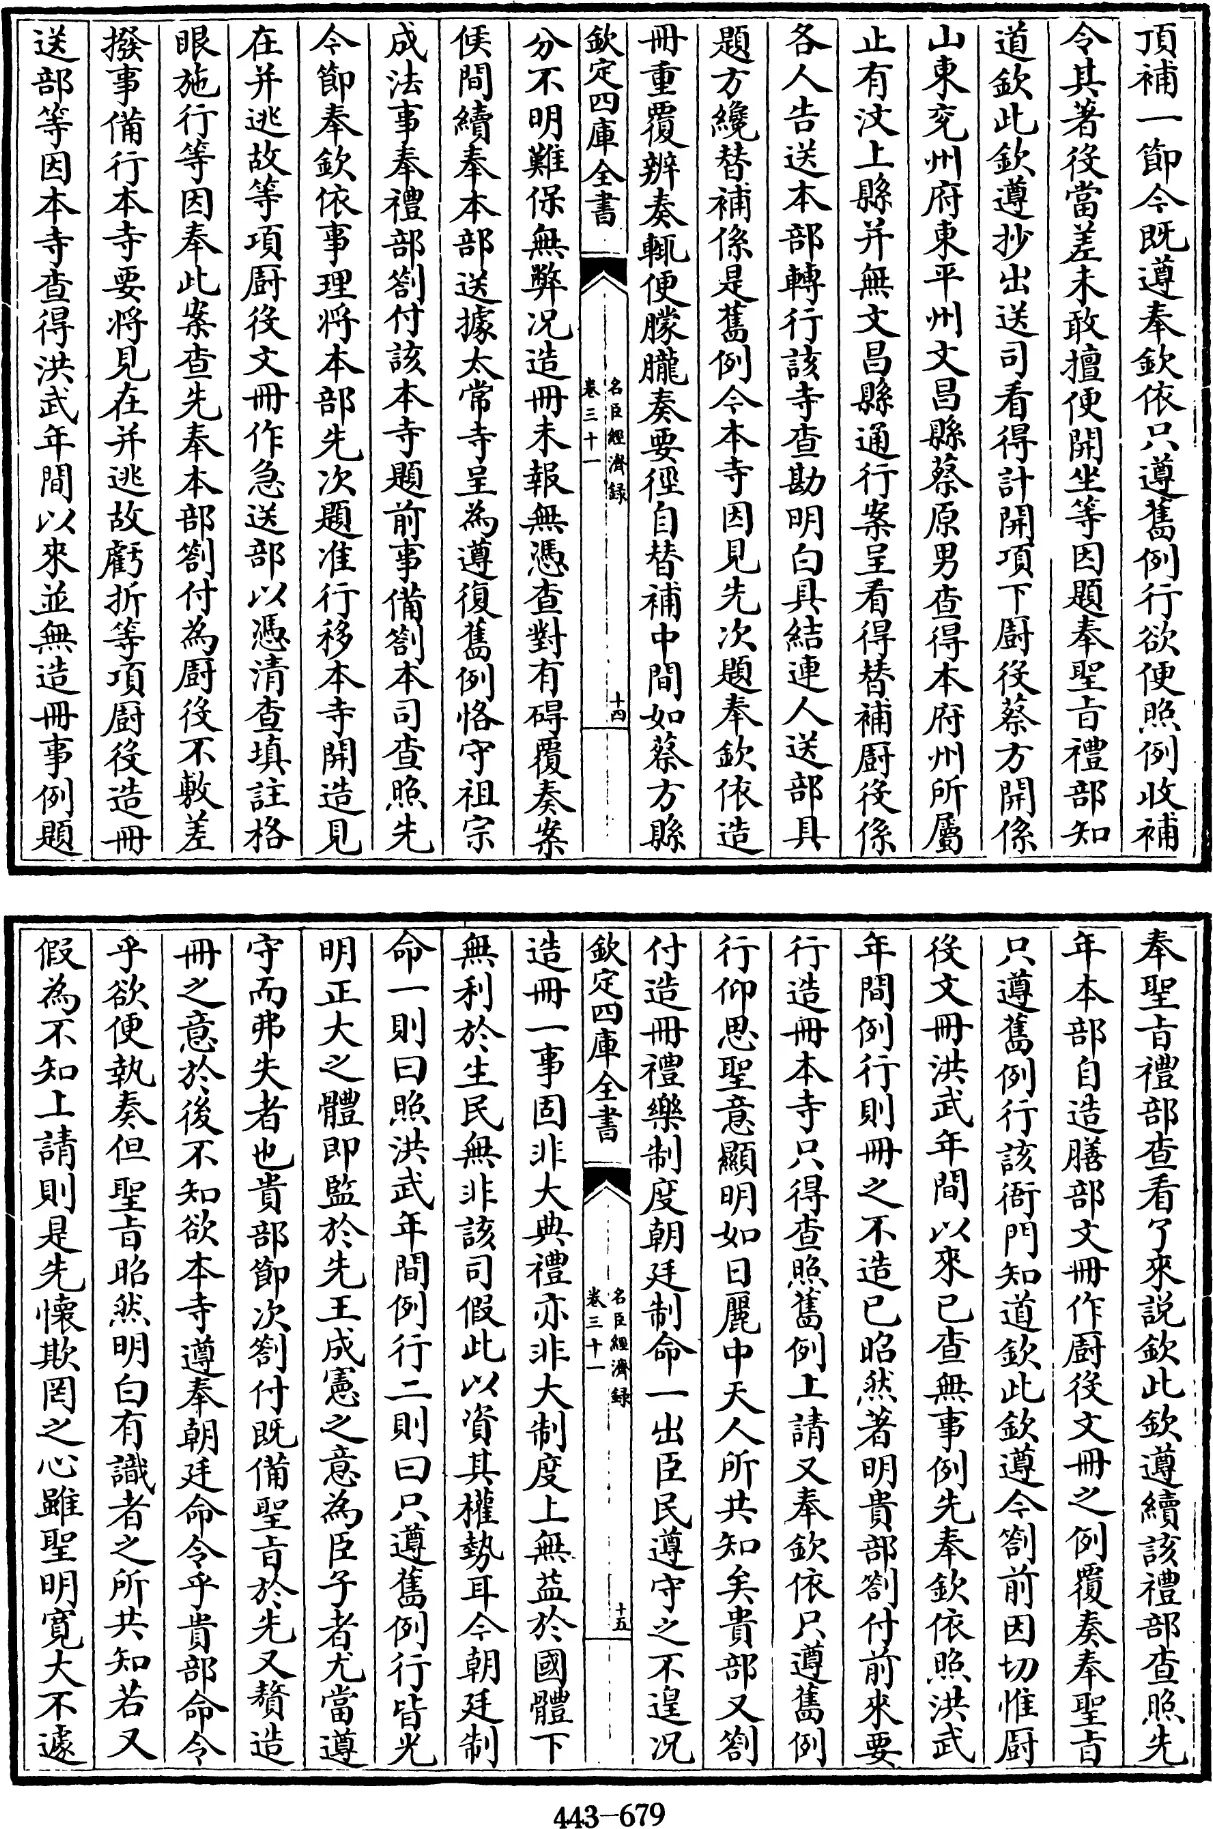 頂補一節今既遵奉欽依只遵舊例行欲便照例收補
令其著役當差未敢擅便開坐等因題奉聖㫖禮部知
道欽此欽遵抄出送司看得計開項下厨役蔡方開係
山東兖州府東平州文昌縣蔡原男查得本府州所屬
止有汶上縣并無文昌縣通行案呈看得替補厨役係
各人告送本部轉行該寺查勘明白具結連人送部具
題方纔替補係是舊例今本寺因見先次題奉欽依造
冊重覆辨奏輒便朦朧奏要徑自替補中間如蔡方縣
欽定四庫全書
名臣經濟録
卷三十一
十四
分不明難保無弊况造冊未報無憑查對有碍覆奏案
候間續奉本部送據太常寺呈為遵復舊例恪守祖宗
成法事奉禮部劄付該本寺題前事備劄本司查照先
今節奉欽依事理將本部先次題准行移本寺開造見
在并逃故等項厨役文冊作急送部以憑清查填註格
眼施行等因奉此案查先奉本部劄付為厨役不敷差
撥事備行本寺要將見在并逃故虧折等項厨役造冊
送部等因本寺查得洪武年間以來並無造冊事例題
奉聖㫖禮部查看了來説欽此欽遵續該禮部查照先
年本部自造膳部文冊作厨役文冊之例覆奏奉聖㫖
只遵舊例行該衙門知道欽此欽遵今劄前因切惟厨
役文冊洪武年間以來已查無事例先奉欽依照洪武
年間例行則冊之不造已昭然著明貴部劄付前來要
行造冊本寺只得查照舊例上請又奉欽依只遵舊例
行仰思聖意顯明如日麗中天人所共知矣貴部又劄
付造冊禮樂制度朝廷制命一出臣民遵守之不遑况
欽定四庫全書
名臣經濟録
卷三十一
十五
造冊一事固非大典禮亦非大制度上無益於國體下
無利於生民無非該司假此以資其權勢耳今朝廷制
命一則曰照洪武年間例行二則曰只遵舊例行皆光
明正大之體即監於先王成憲之意為臣子者尤當遵
守而弗失者也貴部節次劄付既備聖㫖於先又贅造
冊之意於後不知欲本寺遵奉朝廷命令乎貴部命令
乎欲便執奏但聖㫖昭然明白有識者之所共知若又
假為不知上請則是先懷欺罔之心雖聖明寛大不遽
443-679